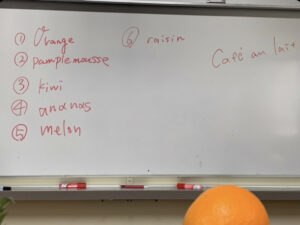 ① Orange
② pamplemousse
③ kiwi
④ ananas
⑤ melon
⑥ raisin
Café au lait